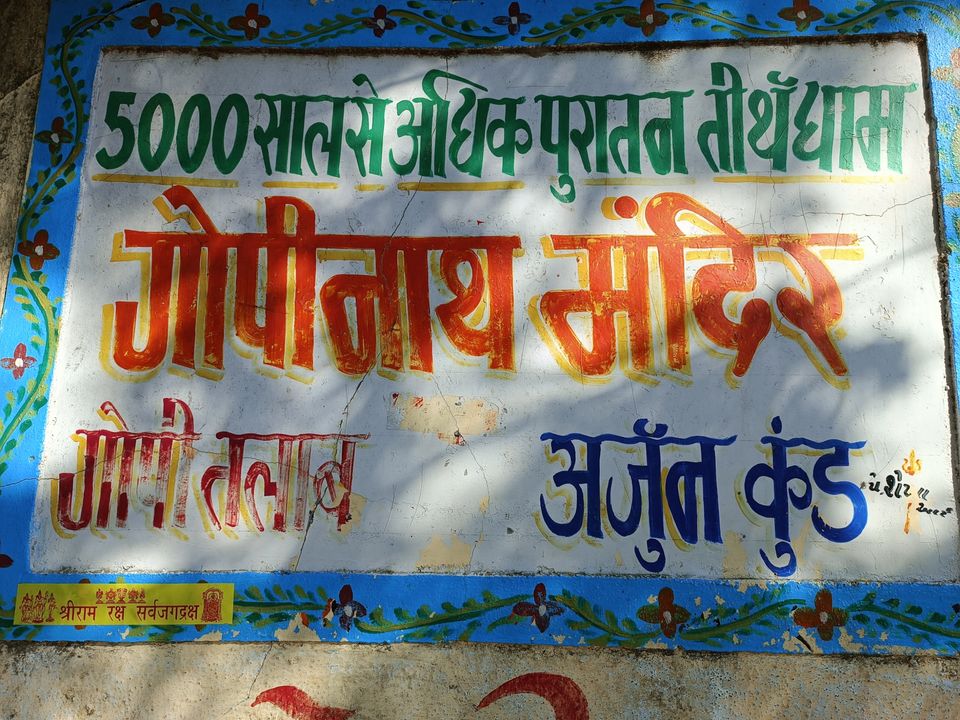 5000 साल से अधिक पुरातन तीर्थ धाम
गोपीनाथ मंदिर
गोपी तलाव
अर्जुन कुंड
श्रीराम रक्ष सर्वजगद्रक्ष